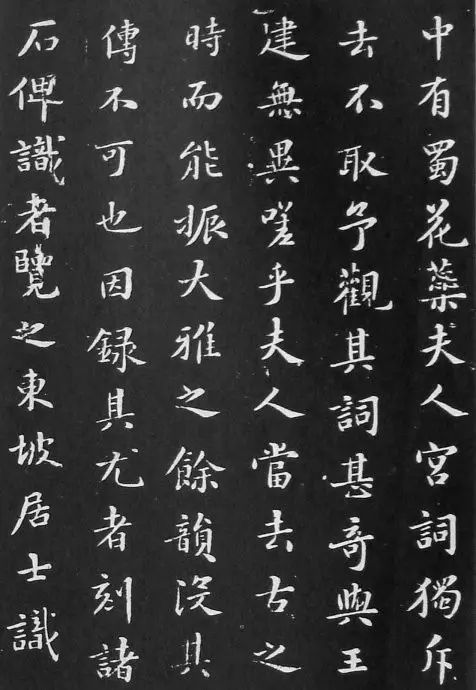 中有蜀花蘂夫人宮詞獨斥
去不取予觀其詞甚奇與王
建無異嗟乎夫人當去古之
時而能振大雅之餘韻沒其
傳不可也因録其尤者刻諸
石俾識者覽之東坡居士識